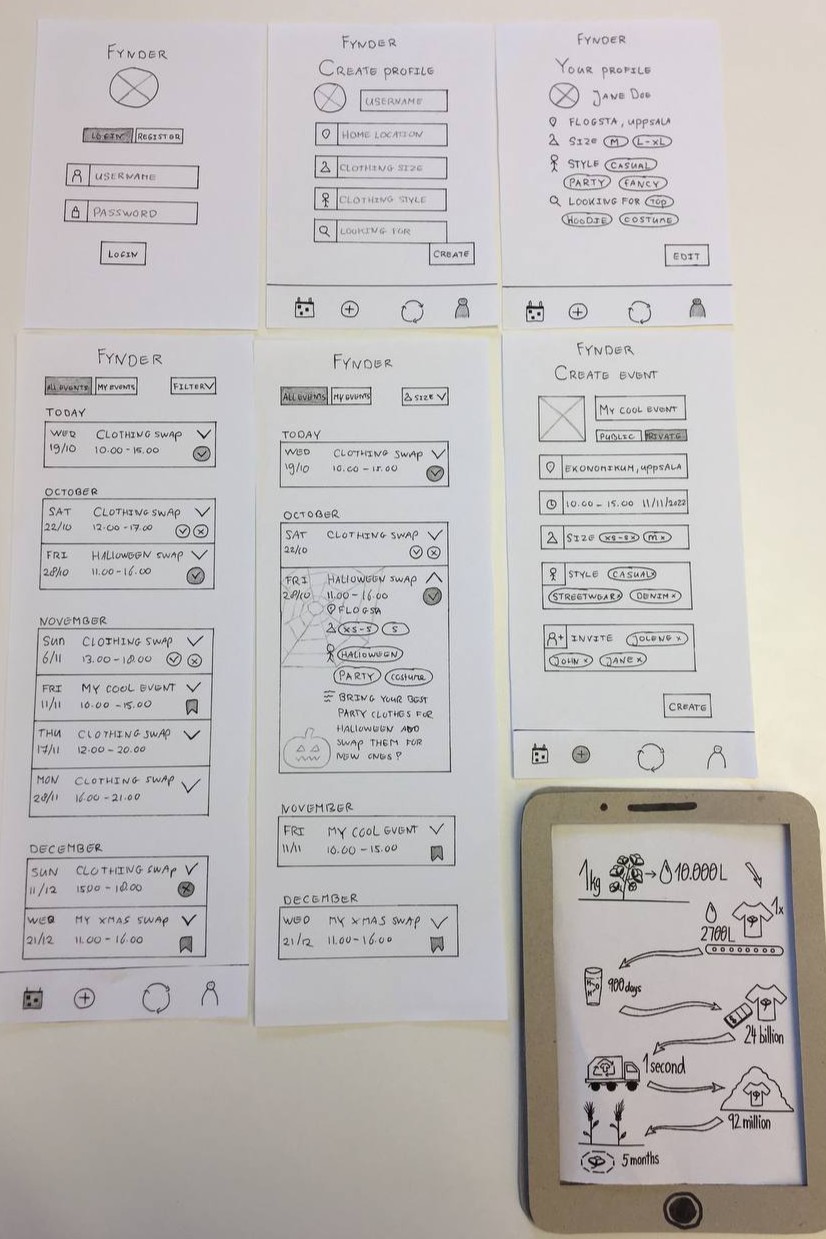 FYNDER
LOGIN REGISTER
USERNAME
PASSWORD
LOGIN
FYNDER
CREATE PROFILE
USERNAME
HOME LOCATION
CLOTHING SIZE
CLOTHING STYLE
LOOKING FOR
CREATE
FYNDER
YOUR PROFILE
JANE DOE
FLOGSTA, UPPSALA
SIZE M L-XL
STYLE CASUAL
PARTY FANCY
LOOKING FOR TOP
HOODIE COSTUME
EDIT
FYNDER
ALL EVENTS MY EVENTS FILTER
TODAY
WED CLOTHING SWAP
19/10 10.00-15.00
OCTOBER
SAT CLOTHING SWAP
22/10 12.00-17.00
FRI HALLOWEEN SWAP
28/10 11.00-16.00
NOVEMBER
SUN CLOTHING SWAP
6/11 13.00-18.00
FRI MY COOL EVENT
11/11 10.00-15.00
THU CLOTHING SWAP
17/11 12.00-20.00
MON CLOTHING SWAP
28/11 16.00-21.00
DECEMBER
SUN CLOTHING SWAP
11/12 1500-18.00
WED MY XMAS SWAP
21/12 11.00-16.00
FYNDER
ALL EVENTS MY EVENTS SIZE
TODAY
WED CLOTHING SWAP
19/10 10.00-15.00
OCTOBER
SAT CLOTHING SWAP
22/10
FRI HALLOWEEN SWAP
28/10 11.00-16.00
FLOGSTA
XS-S S
HALLOWEEN
PARTY COSTUME
BRING YOUR BEST
PARTY CLOTHES FOR
HALLOWEEN AND
SWAP THEM FOR
NEW ONES!
NOVEMBER
FRI MY COOL EVENT
11/11 10.00-15.00
DECEMBER
WED MY XMAS SWAP
21/12 11.00-16.00
FYNDER
CREATE EVENT
MY COOL EVENT
PUBLIC PRIVATE
EKONOMIKUM, UPPSALA
10.00-15.00 11/11/2022
SIZE XS-S× M×
STYLE CASUAL×
STREETWEAR× DENIM×
INVITE JOLENE×
JOHN× JANE×
CREATE
1kg → 10.000L
1x
2700L
H₂O
900days
$
24 billion
1second
92 million
5 months